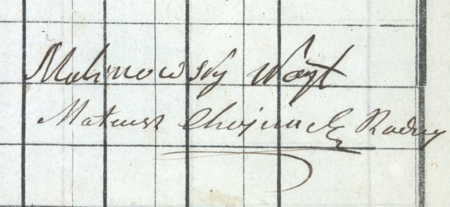 Malinowsky Woyt
Mateusz Chojnacky Radny